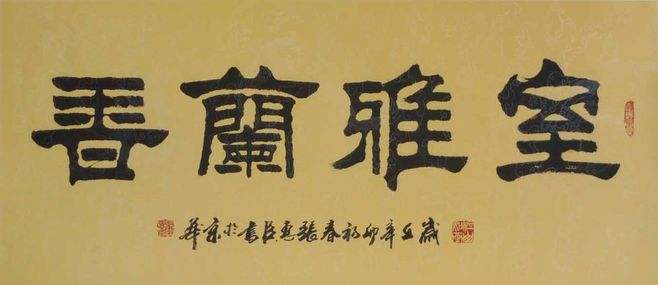 室雅蘭香
歲在辛卯初春張惠臣書於京華